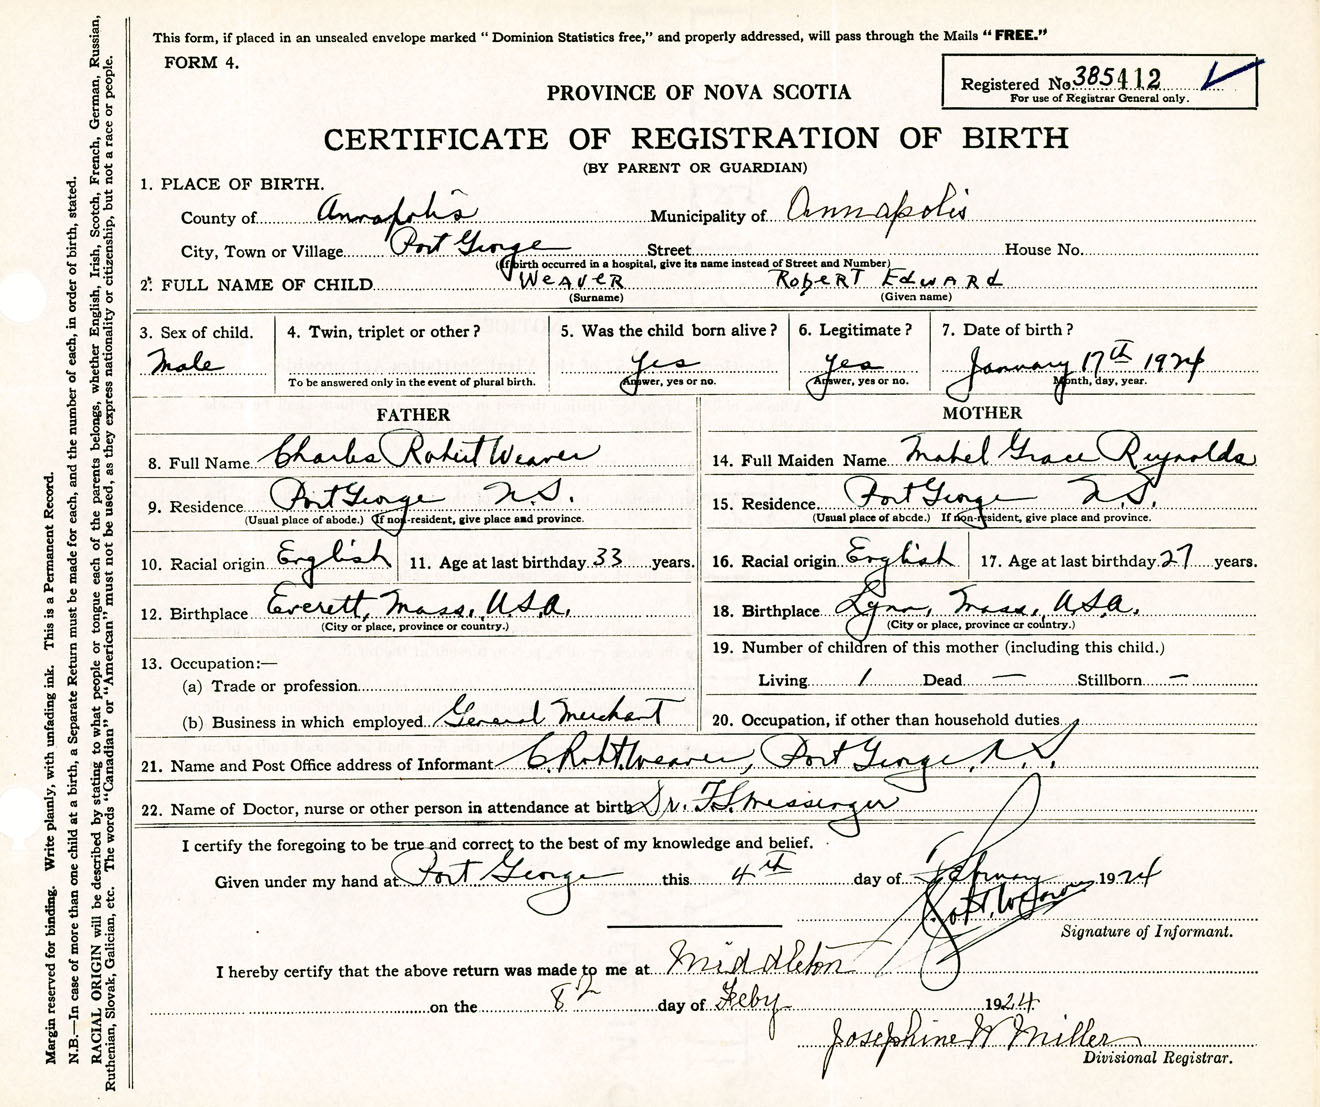 This form, if placed in an unsealed envelope marked “Dominion Statistics free,” and properly addressed, will pass through the Mails “FREE.”
FORM 4.
Registered No. 385412
For use of Registrar General only.
PROVINCE OF NOVA SCOTIA
CERTIFICATE OF REGISTRATION OF BIRTH
(BY PARENT OR GUARDIAN)
1. PLACE OF BIRTH.
County of Annapolis Municipality of Annapolis
City, Town or Village Port George Street House No.
(If birth occurred in a hospital, give its name instead of Street and Number)
2. FULL NAME OF CHILD WEAVER ROBERT EDWARD
(Surname) (Given name)
3. Sex of child. 4. Twin, triplet or other? 5. Was the child born alive? 6. Legitimate? 7. Date of birth?
Male Yes Yes January 17th 1924
To be answered only in the event of plural birth. Answer, yes or no. Answer, yes or no. Month, day, year.
FATHER
8. Full Name Charles Robert Weaver
9. Residence Port George N.S.
(Usual place of abode.) If non-resident, give place and province.
10. Racial origin English 11. Age at last birthday 33 years.
12. Birthplace Everett, Mass, U.S.A.
(City or place, province or country.)
13. Occupation:—
(a) Trade or profession
(b) Business in which employed General Merchant
MOTHER
14. Full Maiden Name Mabel Grace Reynolds
15. Residence Port George N.S.
(Usual place of abode.) If non-resident, give place and province.
16. Racial origin English 17. Age at last birthday 27 years.
18. Birthplace Lynn, Mass, U.S.A.
(City or place, province or country.)
19. Number of children of this mother (including this child.)
Living 1 Dead — Stillborn —
20. Occupation, if other than household duties
21. Name and Post Office address of Informant C. Robt. Weaver, Port George, N.S.
22. Name of Doctor, nurse or other person in attendance at birth Dr. F.S. Messenger
I certify the foregoing to be true and correct to the best of my knowledge and belief.
Given under my hand at Port George this 4th day of February 1924
Signature of Informant.
I hereby certify that the above return was made to me at Middleton
on the 8th day of Feby 1924
Josephine W Miller
Divisional Registrar.
Margin reserved for binding. Write plainly, with unfading ink. This is a Permanent Record.
N.B.—In case of more than one child at a birth, a Separate Return must be made for each, and the number of each, in order of birth, stated.
RACIAL ORIGIN will be described by stating to what people or tongue each of the parents belongs, whether English, Irish, Scotch, French, German, Russian,
Ruthenian, Slovak, Galician, etc. The words “Canadian” or “American” must not be used, as they express nationality or citizenship, but not a race or people.